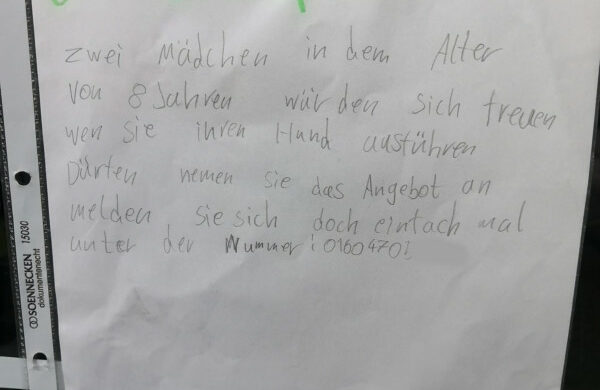 zwei Mädchen in dem Alter
von 8 Jahren würden sich freuen
wen sie ihren Hund ausführen
Dürfen nemen sie das Angebot an
melden sie sich doch einfach mal
unter der Nummer: 0160470
SOENNECKEN 15030
dokumentenecht